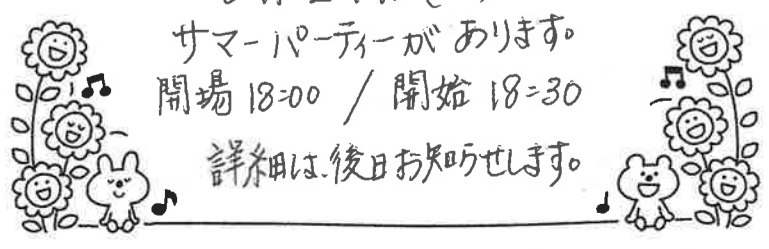 サマーパーティーがあります。
開場 18:00 / 開始 18:30
詳細は、後日お知らせします。